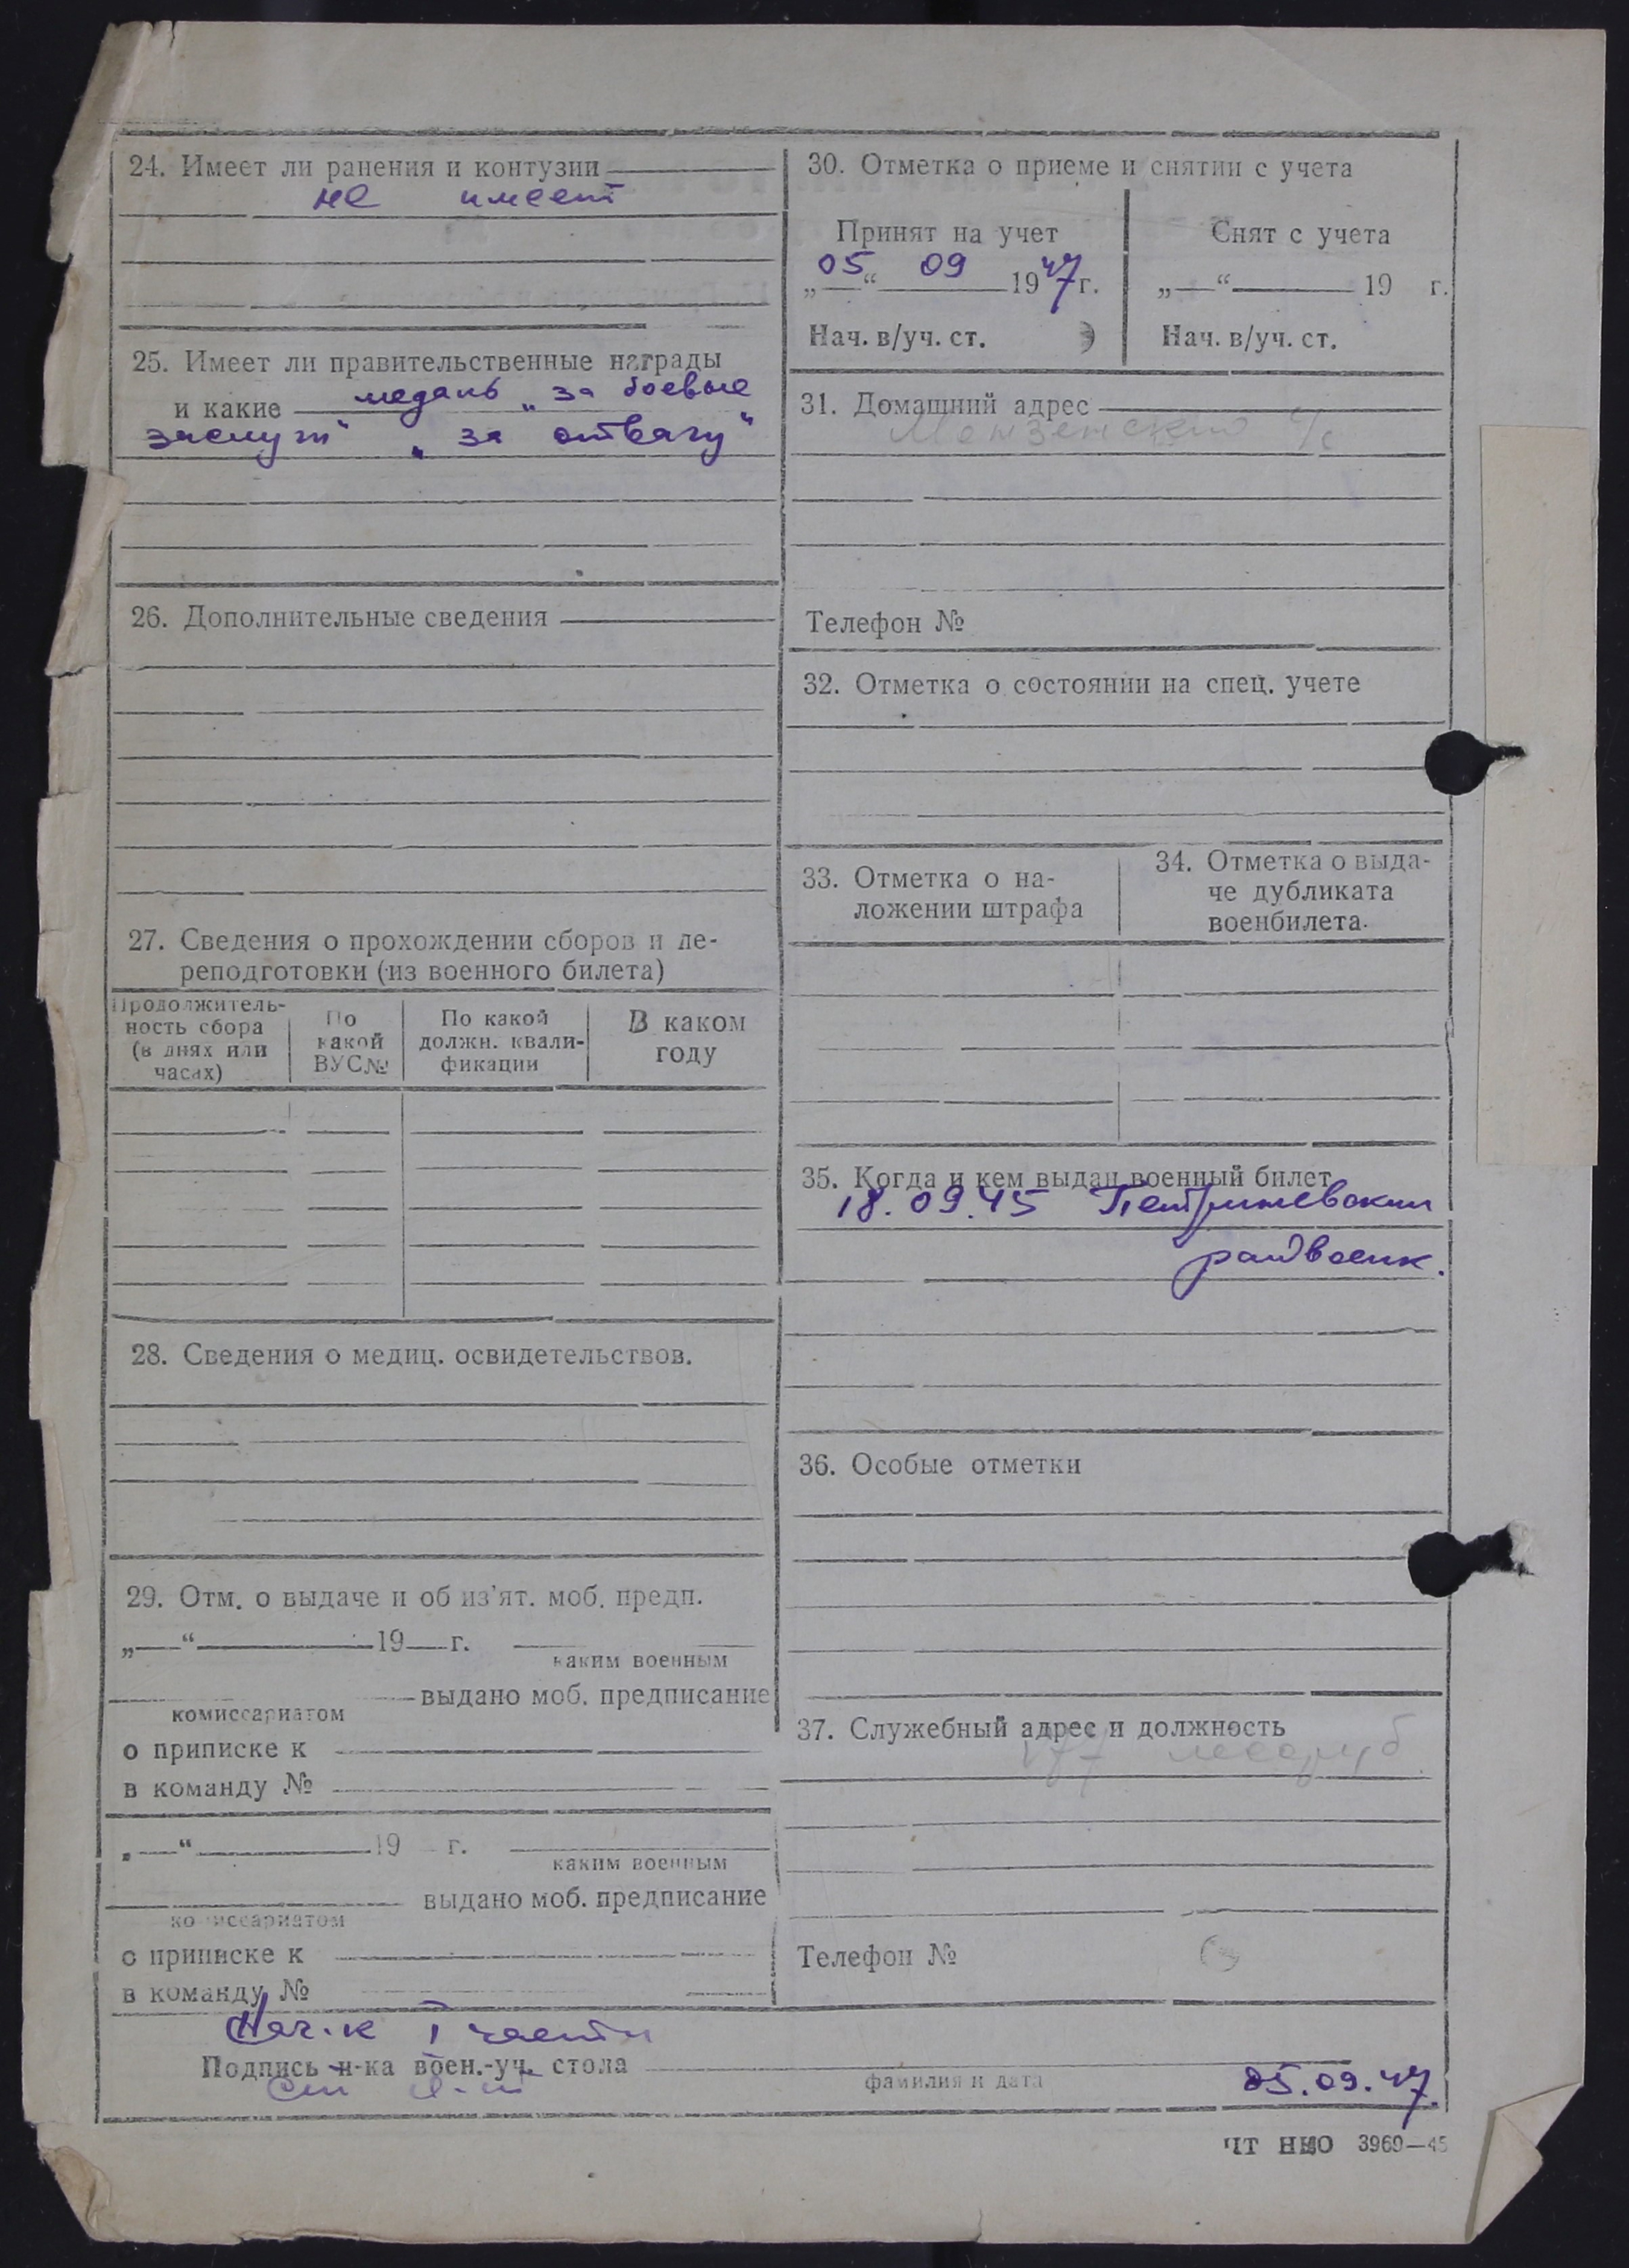 24. Имеет ли ранения и контузии
не имеет
25. Имеет ли правительственные награды
и какие медаль „за боевые
заслуги“ „за отвагу“
26. Дополнительные сведения
27. Сведения о прохождении сборов и пе-
реподготовки (из военного билета)
Продолжитель-
ность сбора
(в днях или
часах)
По
какой
ВУС№
По какой
должн. квали-
фикации
В каком
году
28. Сведения о медиц. освидетельствов.
29. Отм. о выдаче и об из'ят. моб. предп.
„—“ 19 г.
каким военным
выдано моб. предписание
комиссариатом
о приписке к
в команду №
„—“ 19 г.
каким военным
выдано моб. предписание
комиссариатом
о приписке к
в команду №
30. Отметка о приеме и снятии с учета
Принят на учет
„05“ 09 1947г.
Нач. в/уч. ст.
Снят с учета
„—“ 19 г.
Нач. в/уч. ст.
31. Домашний адрес
Мензенский с/с
Телефон №
32. Отметка о состоянии на спец. учете
33. Отметка о на-
ложении штрафа
34. Отметка о выда-
че дубликата
военбилета.
35. Когда и кем выдан военный билет
18.09.45 Петришевским
райвоенк.
36. Особые отметки
37. Служебный адрес и должность
лесоруб
Телефон №
Нач-к I части
Подпись н-ка воен.-уч. стола
ст л-т
фамилия и дата
05.09.47.
ЧТ НКО 3969—45